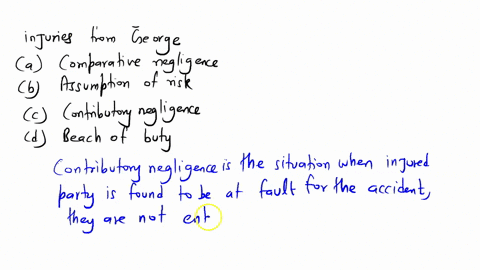 injuries from George
(a) Comparative negligence
(b) Assumption of risk
(c) Contributory negligence
(d) Beach of buty
Contributory negligence is the situation when injured
party is found to be at fault for the accident,
they are not ent